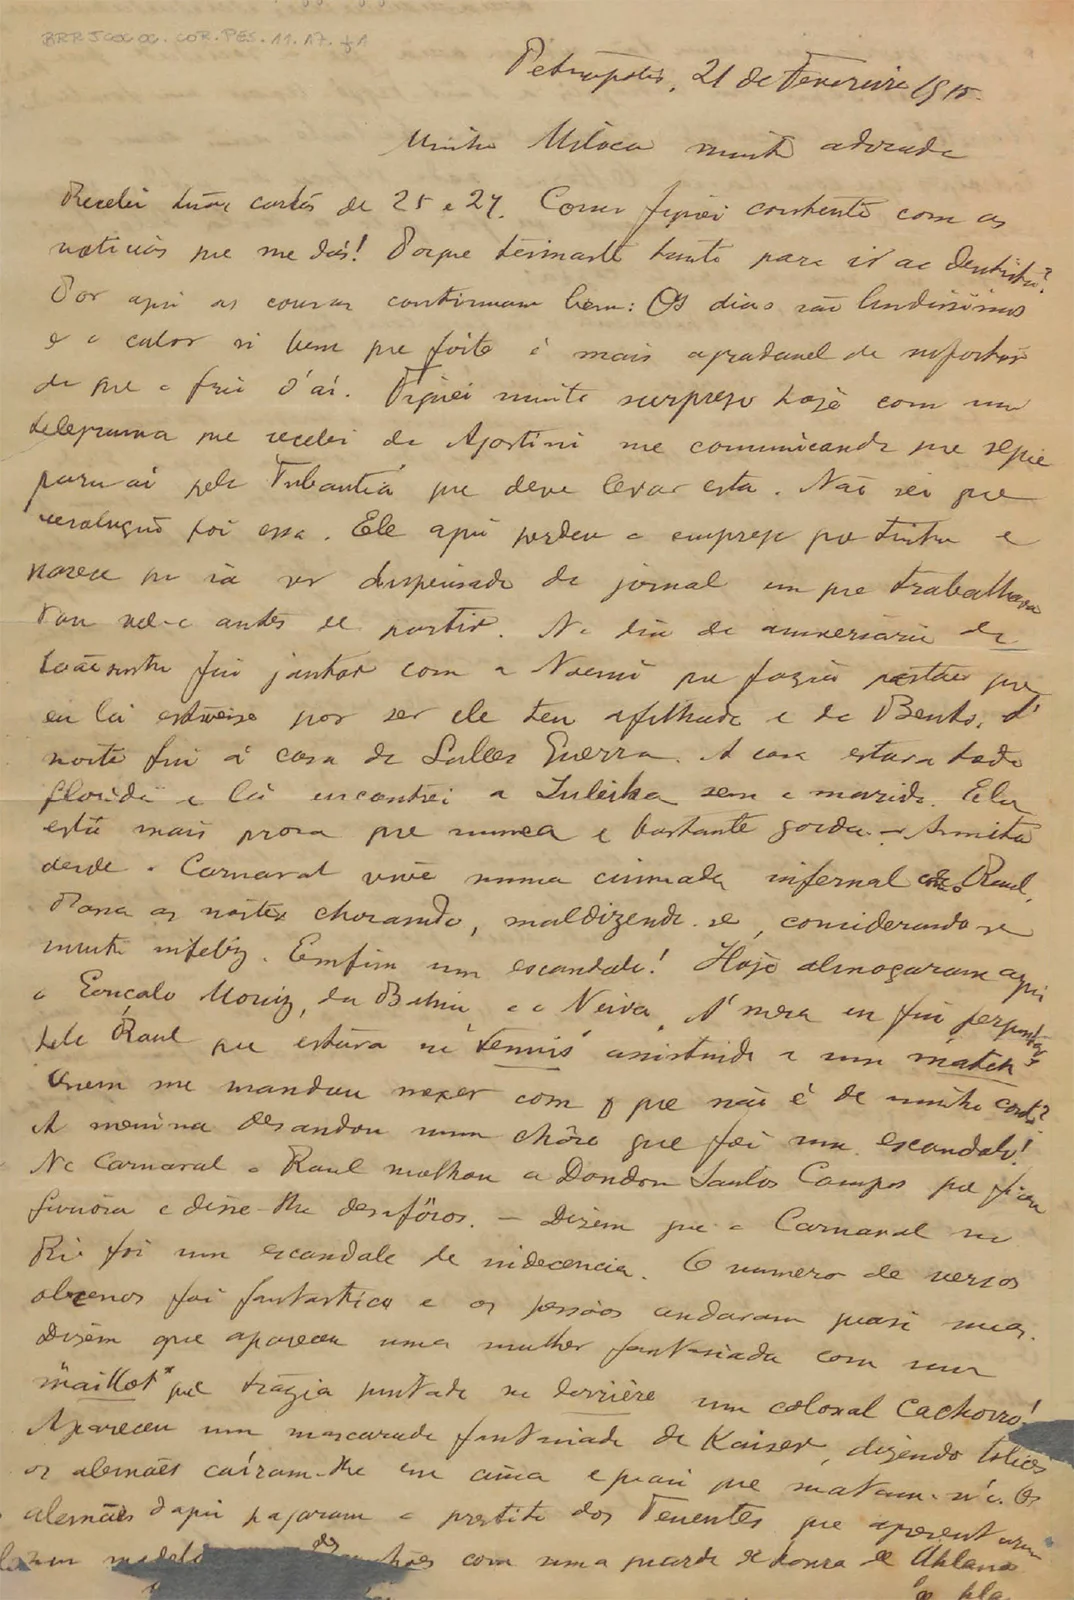 BRRJCOC OC. COR. PES. 11. 17. f1
Petropolis, 21 de Fevereiro 1915.
Minha Miloca muito adorada
Recebi tuas cartas de 25 e 27. Como fiquei contente com as
noticias que me dás! Porque teimaste tanto para ir ao dentista?
Por aqui as cousas continuam bem: Os dias são lindissimos
e o calor si bem que forte é mais agradavel de suportar
do que o frio d'ai. Fiquei muito surpreso hoje com um
telegramma que recebi do Agostini me comunicando que segue
para ai pelo Tubantia que deve levar esta. Não sei que
resolução foi essa. Ele aqui perdeu o emprego que tinha e
parece que ia ser dispensado do jornal em que trabalhava
Vou vel-o antes de partir. No dia do aniversario do
Joãosinho fui jantar com a Noemi que fazia questão que
eu lá estivesse por ser ele teu afilhado e do Bento. Á
noite fui á casa do Salles Guerra. A casa estava toda
florida e lá encontrei a Zuleika sem o marido. Ela
está mais prosa que nunca e bastante gorda. — Annita
desde o Carnaval vive numa ciumada infernal com o Raul.
Passa as noites chorando, maldizendo-se, considerando-se
muito infeliz. Emfim um escandalo! Hoje almoçaram aqui
o Gonçalo Moniz, da Bahia e o Neiva. Á mesa eu fui perguntar
pelo Raul que estava no "tennis" assistindo a um match?
Quem me mandou mexer com o que não é de minha conta?
A menina desandou num chôro que foi um escandalo!
No Carnaval o Raul molhou a Dondon Santos Campos que ficou
furiosa e disse-lhe desafôros. — Dizem que o Carnaval no
Rio foi um escandalo de indecencia. O numero de versos
obscenos foi fantastico e as pessôas andaram quasi nuas.
Dizem que apareceu uma mulher fantasiada com um
"maillot" que trazia pintado no derrière um colossal cachorro!
Apareceu um mascarado fantasiado de Kaiser, dizendo tolices
os alemães caíram-lhe em cima e quasi que matam-n'o. Os
alemães d'aqui pagaram o prestito dos Tenentes que apresentaram
um modelo dos canhões com uma guarda de honra de Uhlanos